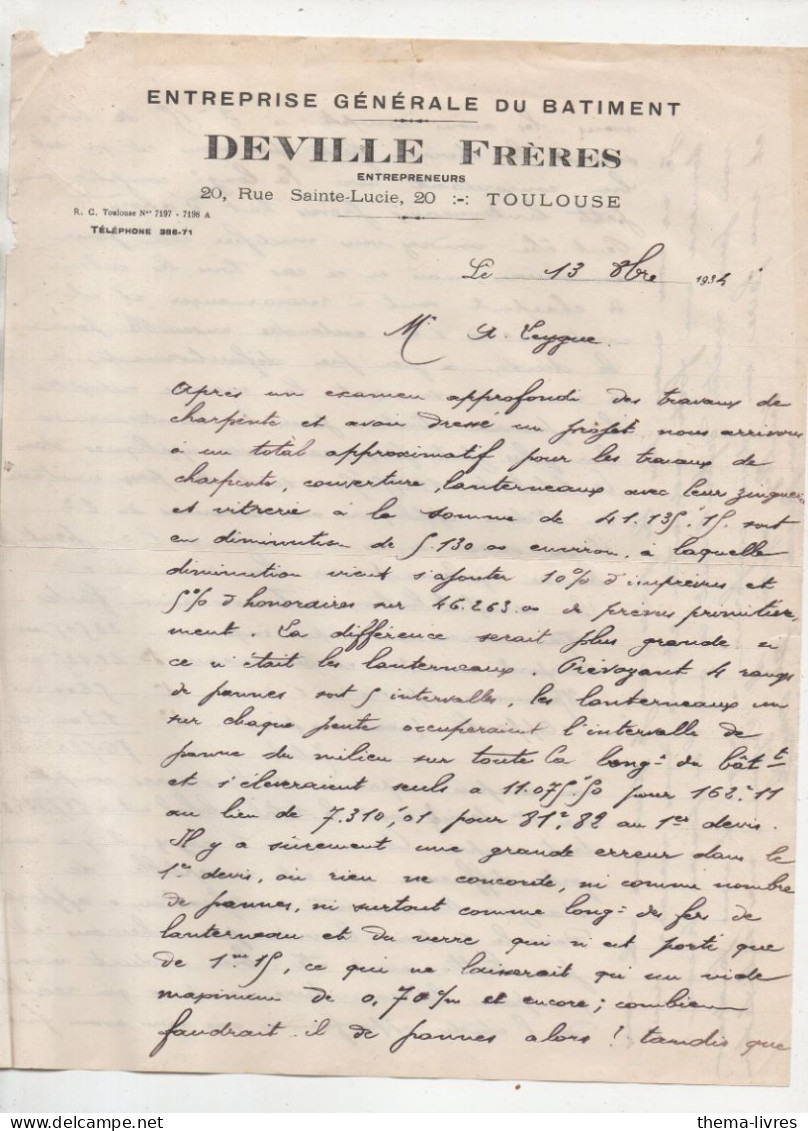 ENTREPRISE GÉNÉRALE DU BATIMENT
DEVILLE FRÈRES
ENTREPRENEURS
20, Rue Sainte-Lucie, 20 :-: TOULOUSE
R. C. Toulouse Nos 7197 - 7198 A
TÉLÉPHONE 386-71
Le 13 8bre 1934
Mr A. Leygue.
Après un examen approfondi des travaux de
charpente et avoir dressé un projet nous arrivons
à un total approximatif pour les travaux de
charpente, couverture, lanterneaux avec leur zinguerie
et vitrerie à la somme de 41.135f.15. soit
en diminution de 5.130 oo environ, à laquelle
diminution vient s'ajouter 10% d'imprévus et
5% d'honoraires sur 46.263.oo de prévus primitive-
ment. La différence serait plus grande si
ce n'était les lanterneaux. Prévoyant 4 rangs
de pannes soit 5 intervalles, les lanterneaux un
sur chaque pente occuperaient l'intervalle de
panne du milieu sur toute la longr du bâtt
et s'élèveraient seuls a 11.075f.50 pour 162.11
au lieu de 7.310f,01 pour 81.82 au 1er devis.
Il y a sûrement une grande erreur dans le
1er devis, où rien ne concorde, ni comme nombre
de pannes, ni surtout comme longr des fers de
lanterneau et du verre qui n'est porté que
de 1.m15, ce qui ne laisserait qu'un vide
maximum de 0,70 c/m et encore; combien
faudrait-il de pannes alors! tandis que
www.thema-livres